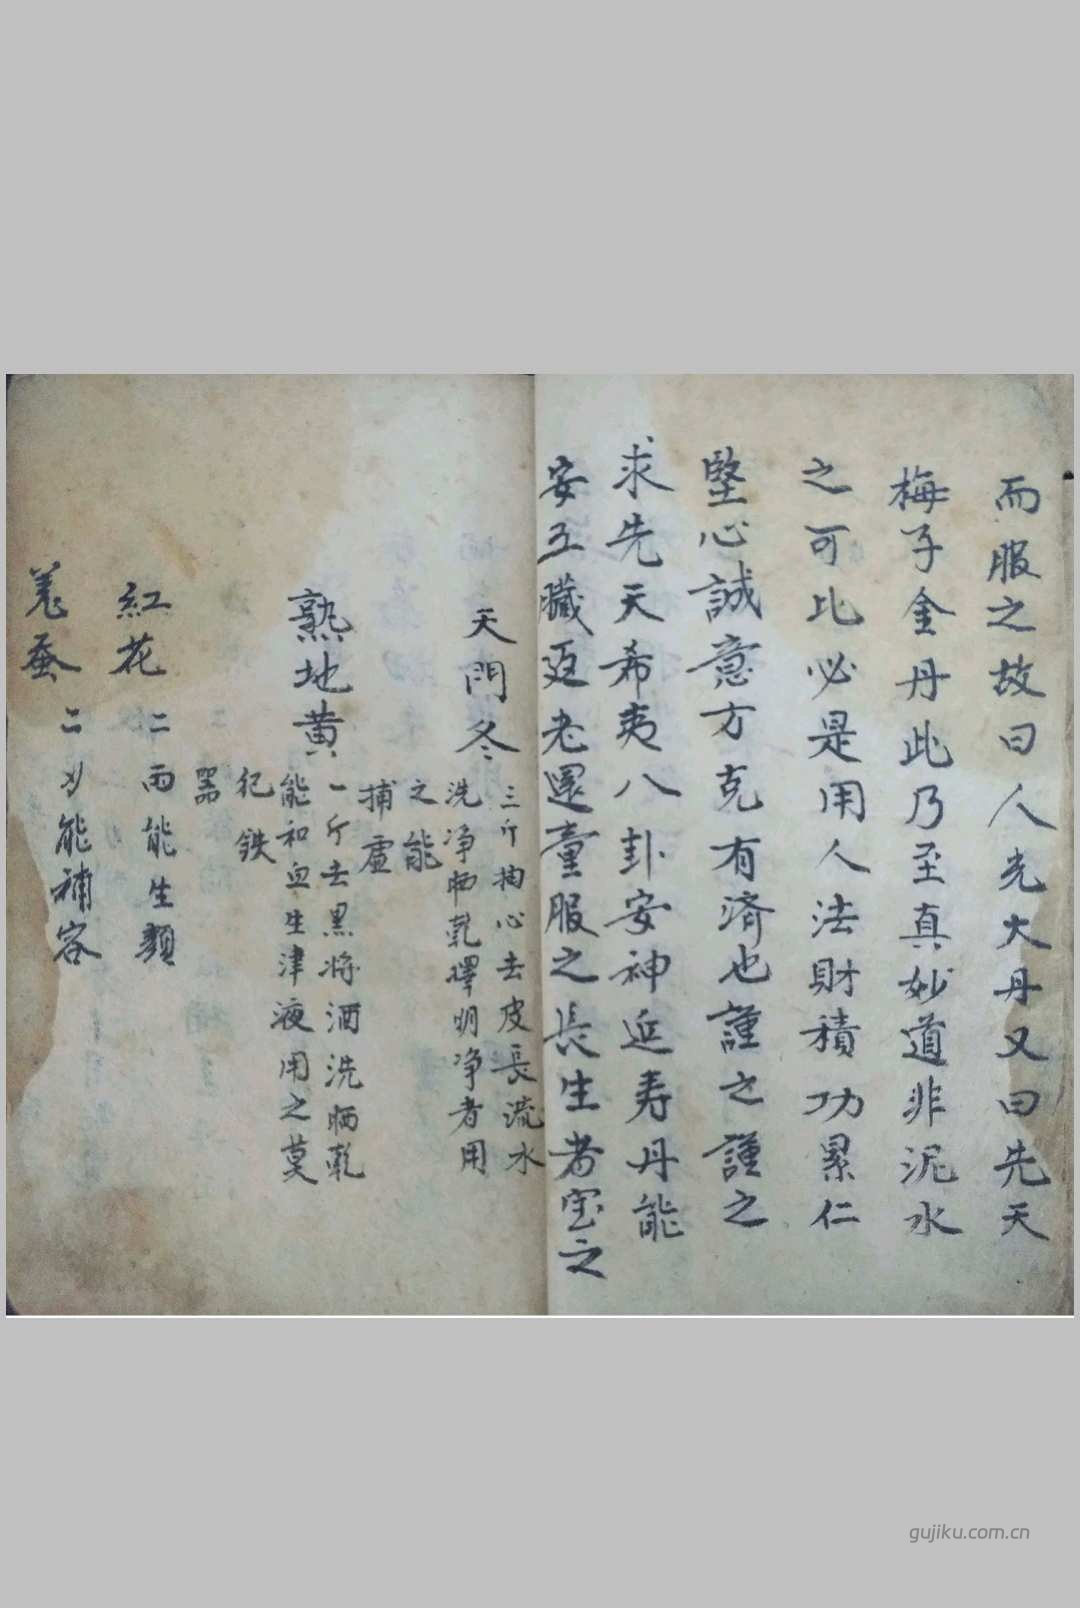 而服之故曰人光大丹又曰先天
梅子金丹此乃至真妙道非泥水
之可比必是用人法財積功累仁
堅心誠意方克有済也謹之謹之
求先天希夷八卦安神延寿丹能
安五臟返老還童服之長生者宝之
天門冬
三斤抽心去皮長流水
洗净晒乾擇明净者用
之能
捕虚
熟地黄
一斤去黑将酒洗晒乾
能和血生津液用之莫
犯鉄
器
紅花 二両能生顏
羌蚕 二 能補容
gujiku.com.cn